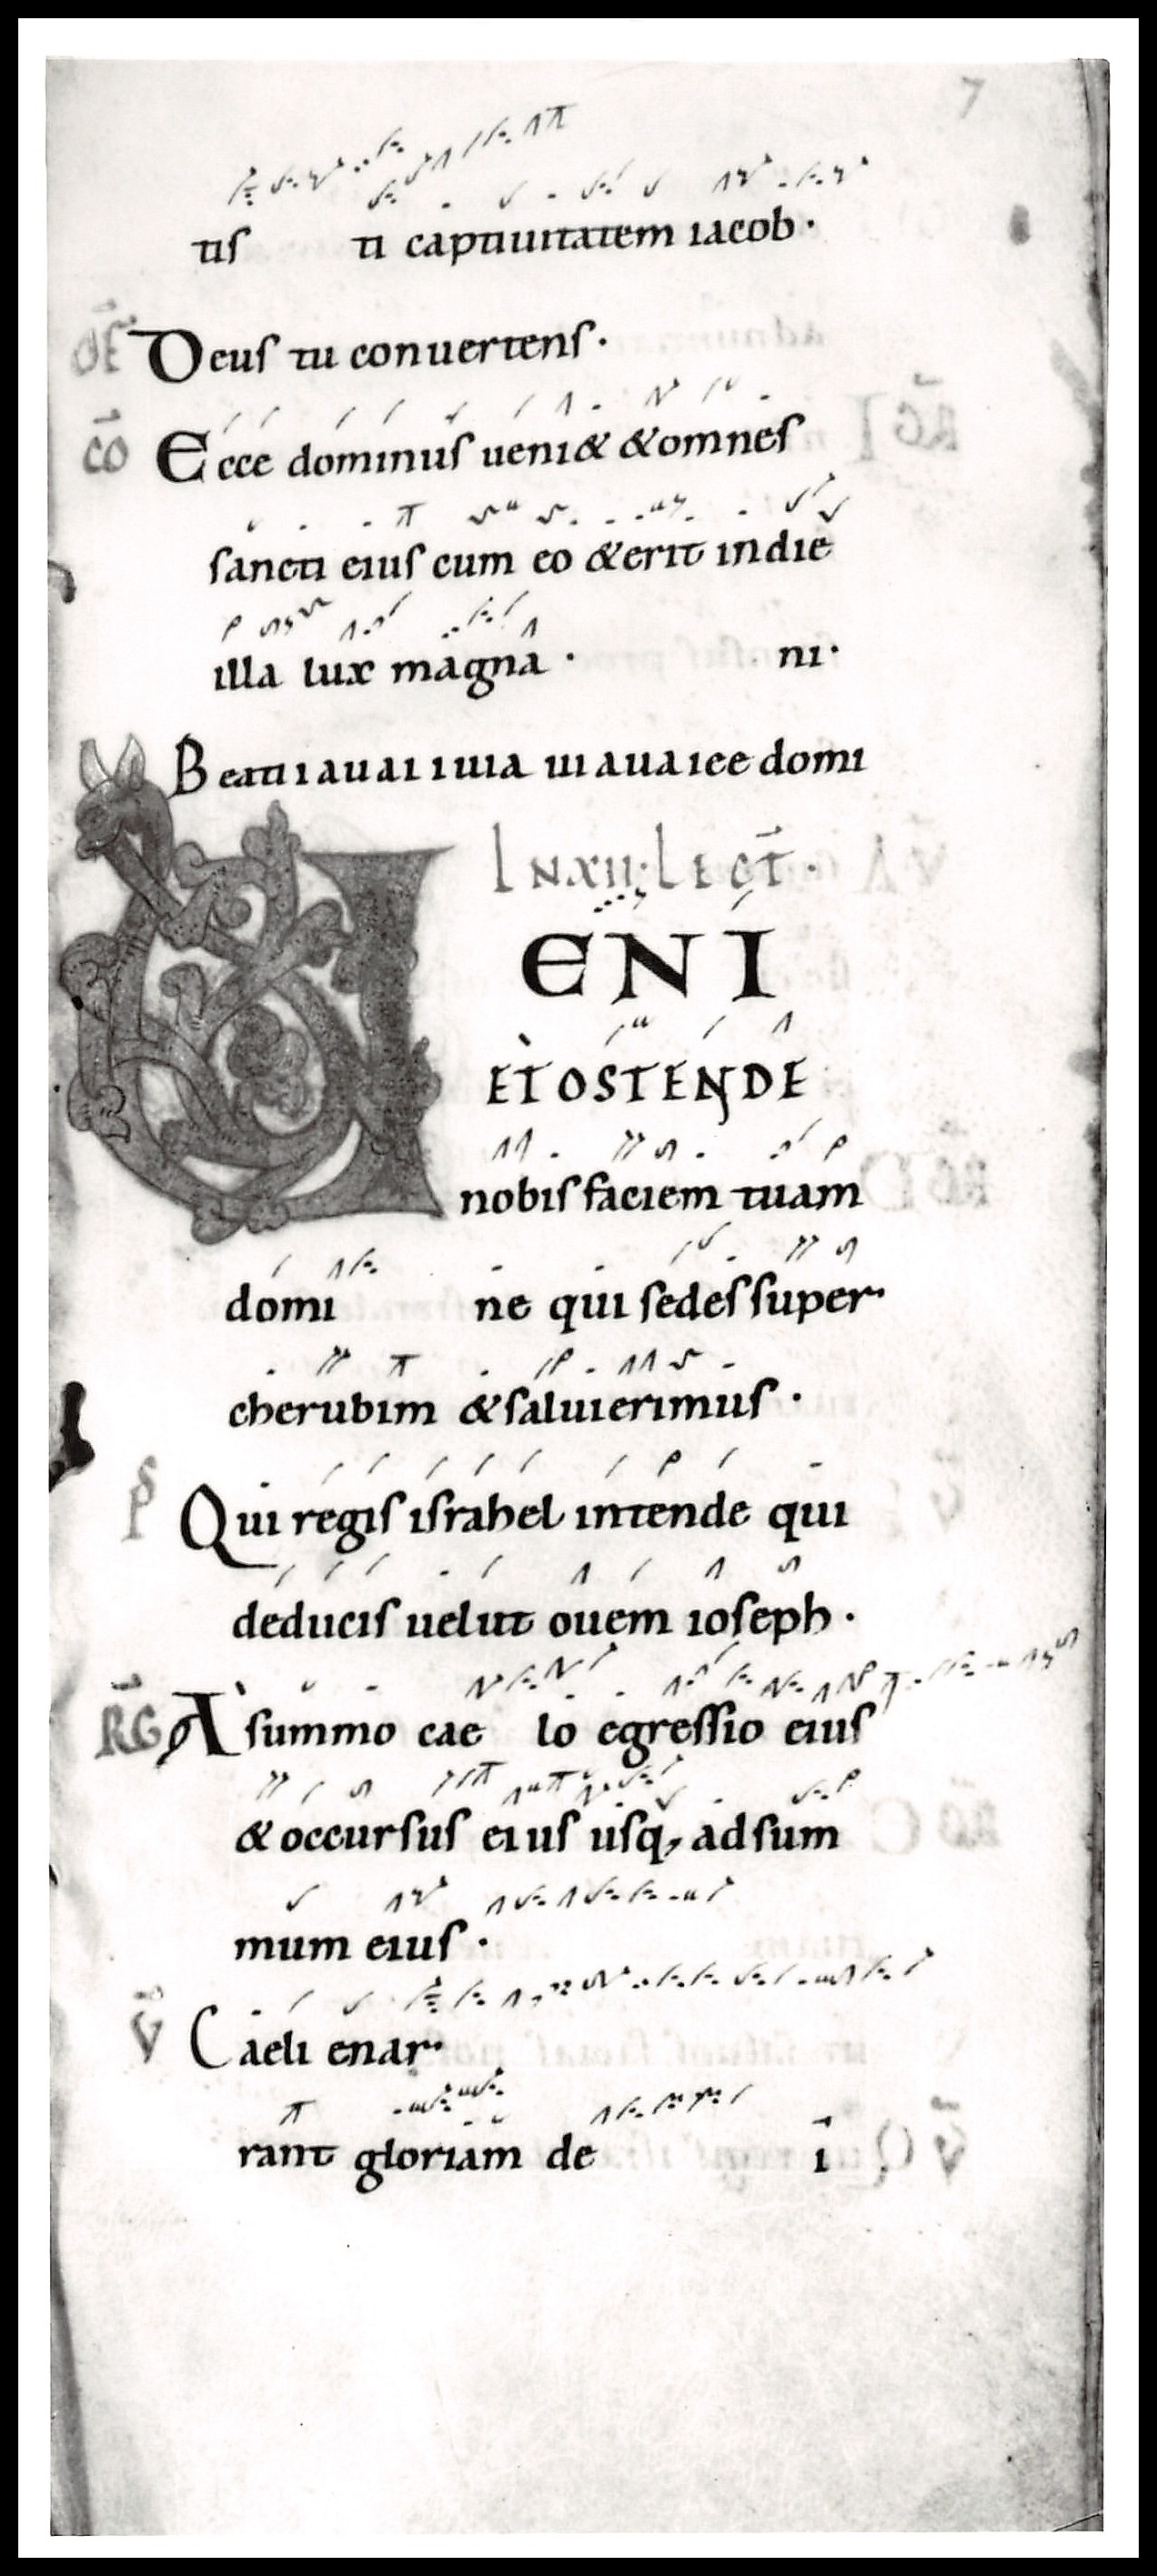 7
tis ti captiuitatem iacob·
OF Deus tu conuertens·
CO Ecce dominus ueni& &omnes
sancti eius cum eo &erit indie
illa lux magna · ni·
Beati i a u a i i uia ui a ua i ee domi
IN XII LECT·
VENI
ET OSTENDE
nobis faciem tuam
domi ne qui sedes super·
cherubim &salui erimus ·
Ps Qui regis israhel intende qui
deducis uelut ouem ioseph ·
RG A summo cae lo egressio eius
&occursus eius usq; ad sum
mum eius ·
V Caeli enar·
rant gloriam de i